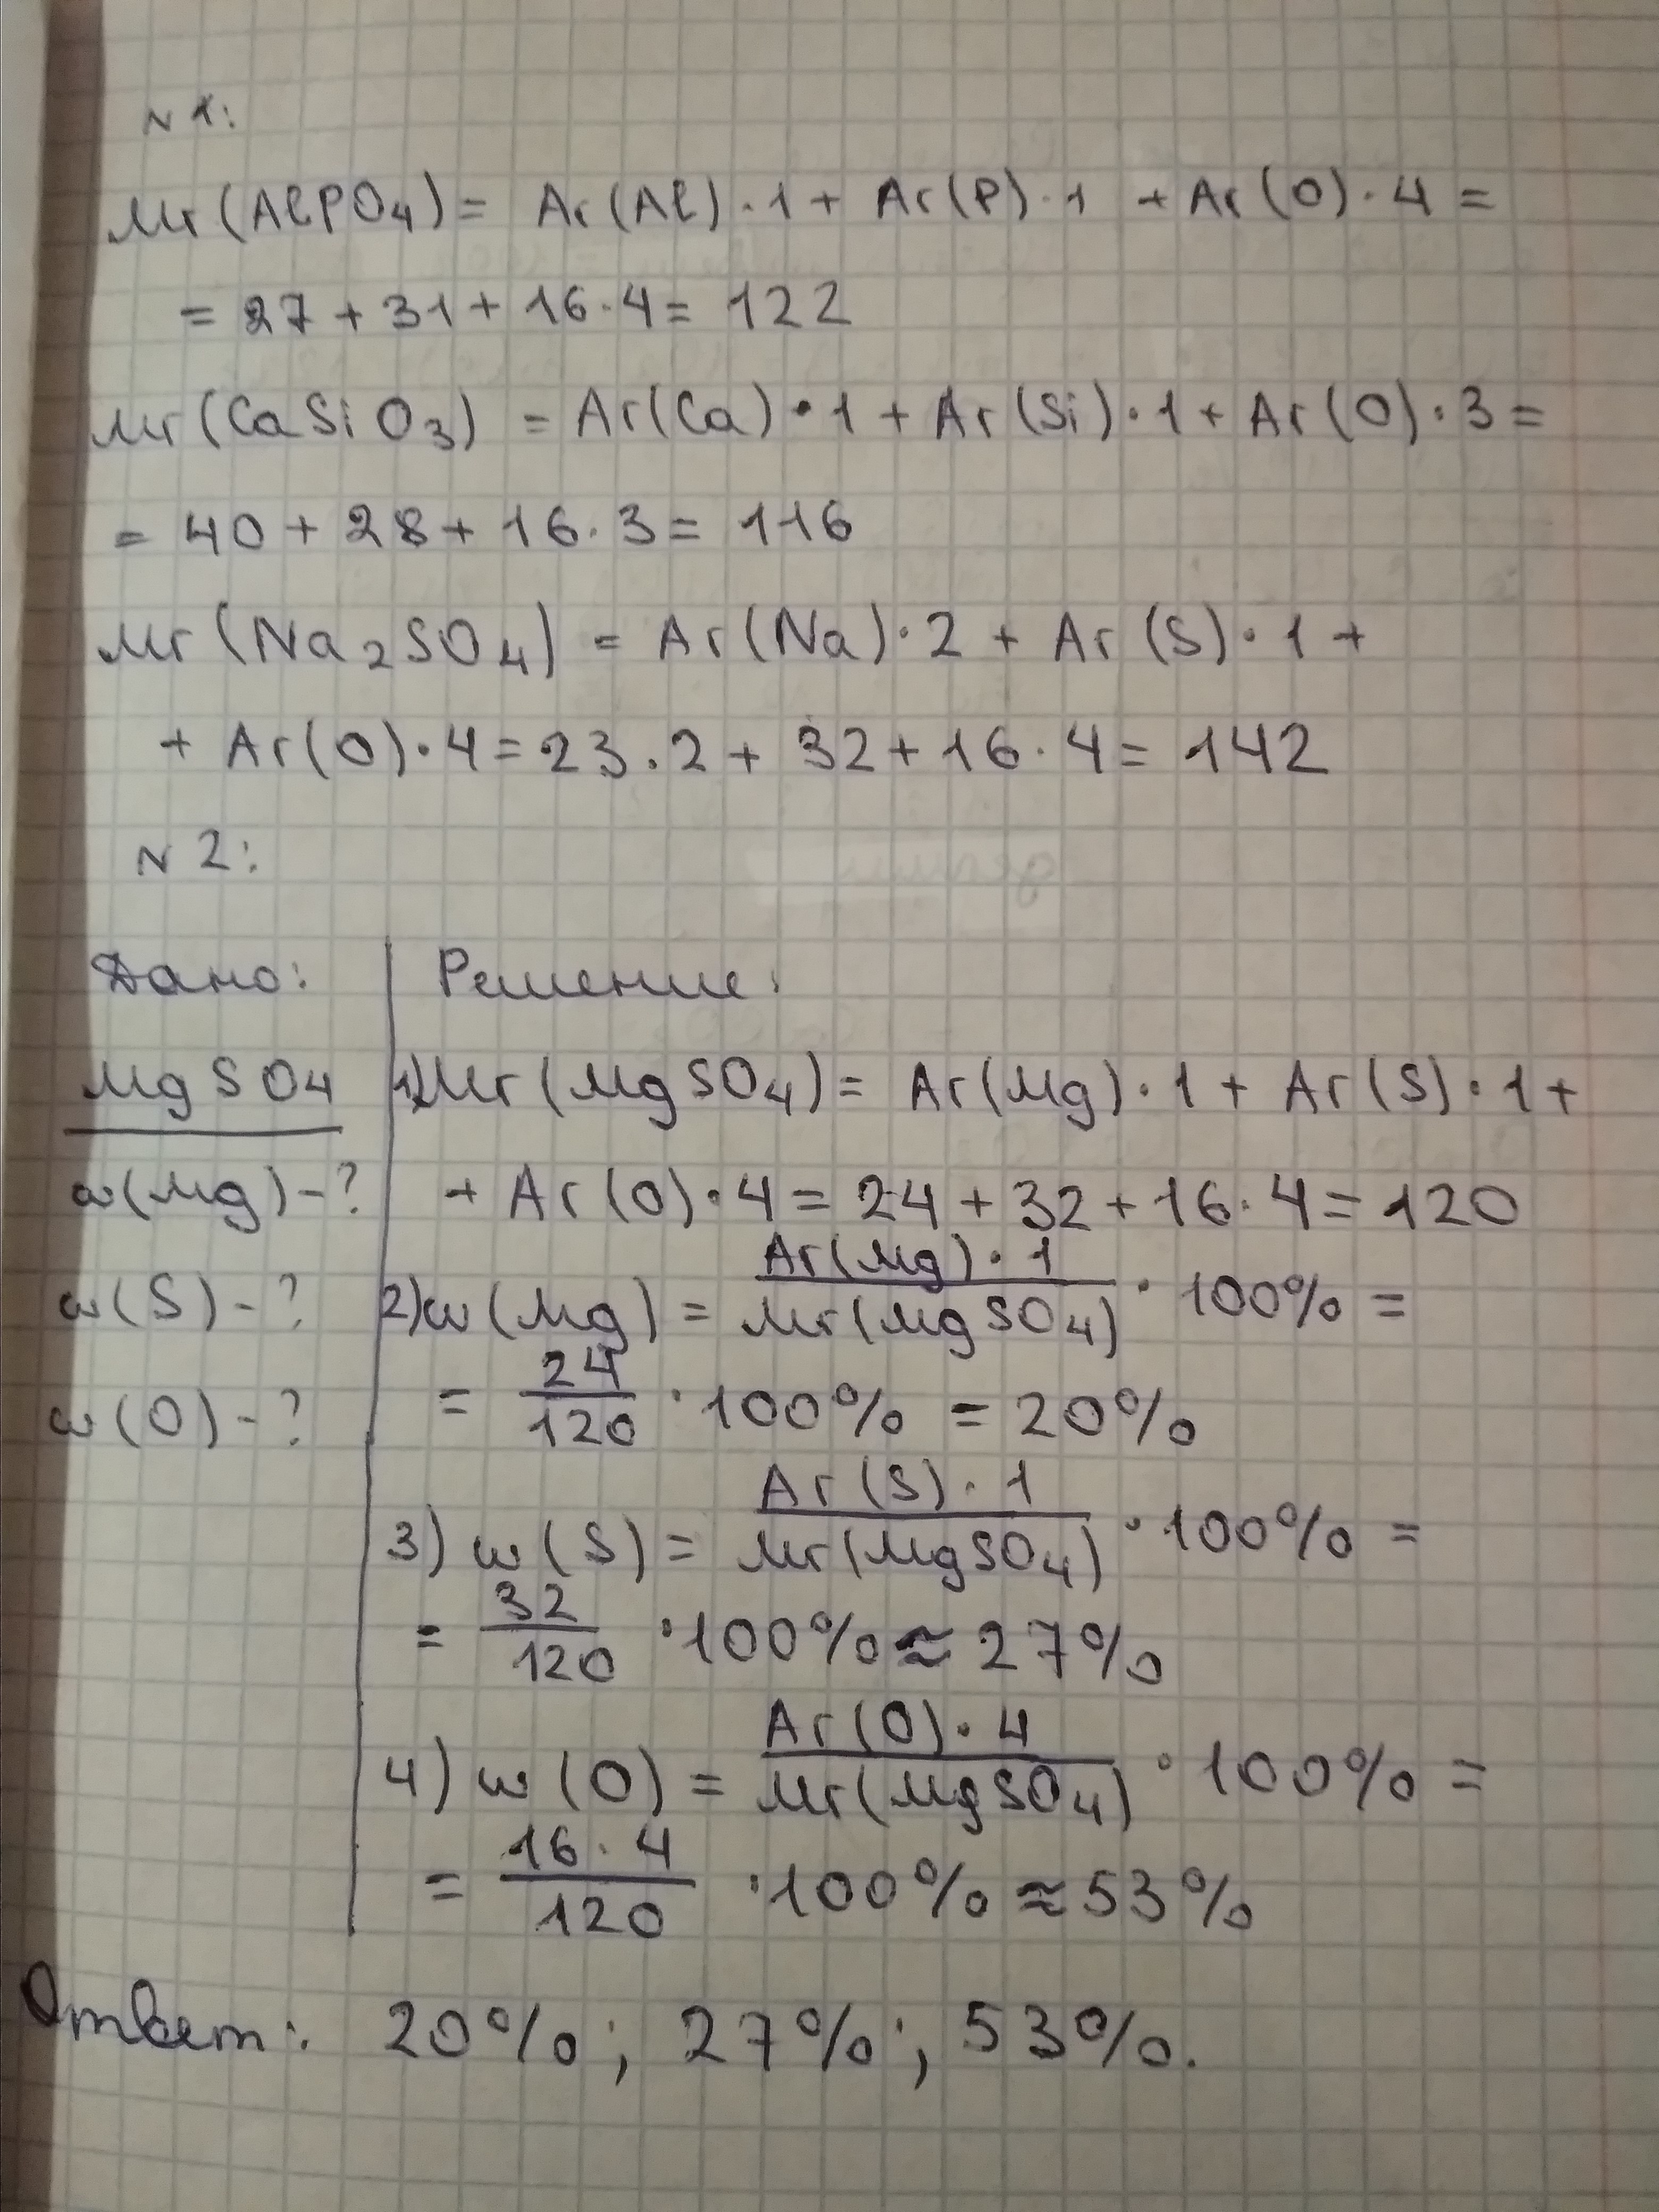 N 1:
Mr(AlPO₄) = Ar(Al)·1 + Ar(P)·1 + Ar(O)·4 =
= 27 + 31 + 16·4 = 122
Mr(CaSiO₃) = Ar(Ca)·1 + Ar(Si)·1 + Ar(O)·3 =
= 40 + 28 + 16·3 = 116
Mr(Na₂SO₄) = Ar(Na)·2 + Ar(S)·1 +
+ Ar(O)·4 = 23·2 + 32 + 16·4 = 142
N 2:
Дано:
MgSO₄
w(Mg) - ?
w(S) - ?
w(O) - ?
Решение:
1) Mr(MgSO₄) = Ar(Mg)·1 + Ar(S)·1 +
+ Ar(O)·4 = 24 + 32 + 16·4 = 120
2) w(Mg) = Ar(Mg)·1 / Mr(MgSO₄) · 100% =
= 24/120 · 100% = 20%
3) w(S) = Ar(S)·1 / Mr(MgSO₄) · 100% =
= 32/120 · 100% ≈ 27%
4) w(O) = Ar(O)·4 / Mr(MgSO₄) · 100% =
= 16·4/120 · 100% ≈ 53%
Ответ: 20%; 27%; 53%.